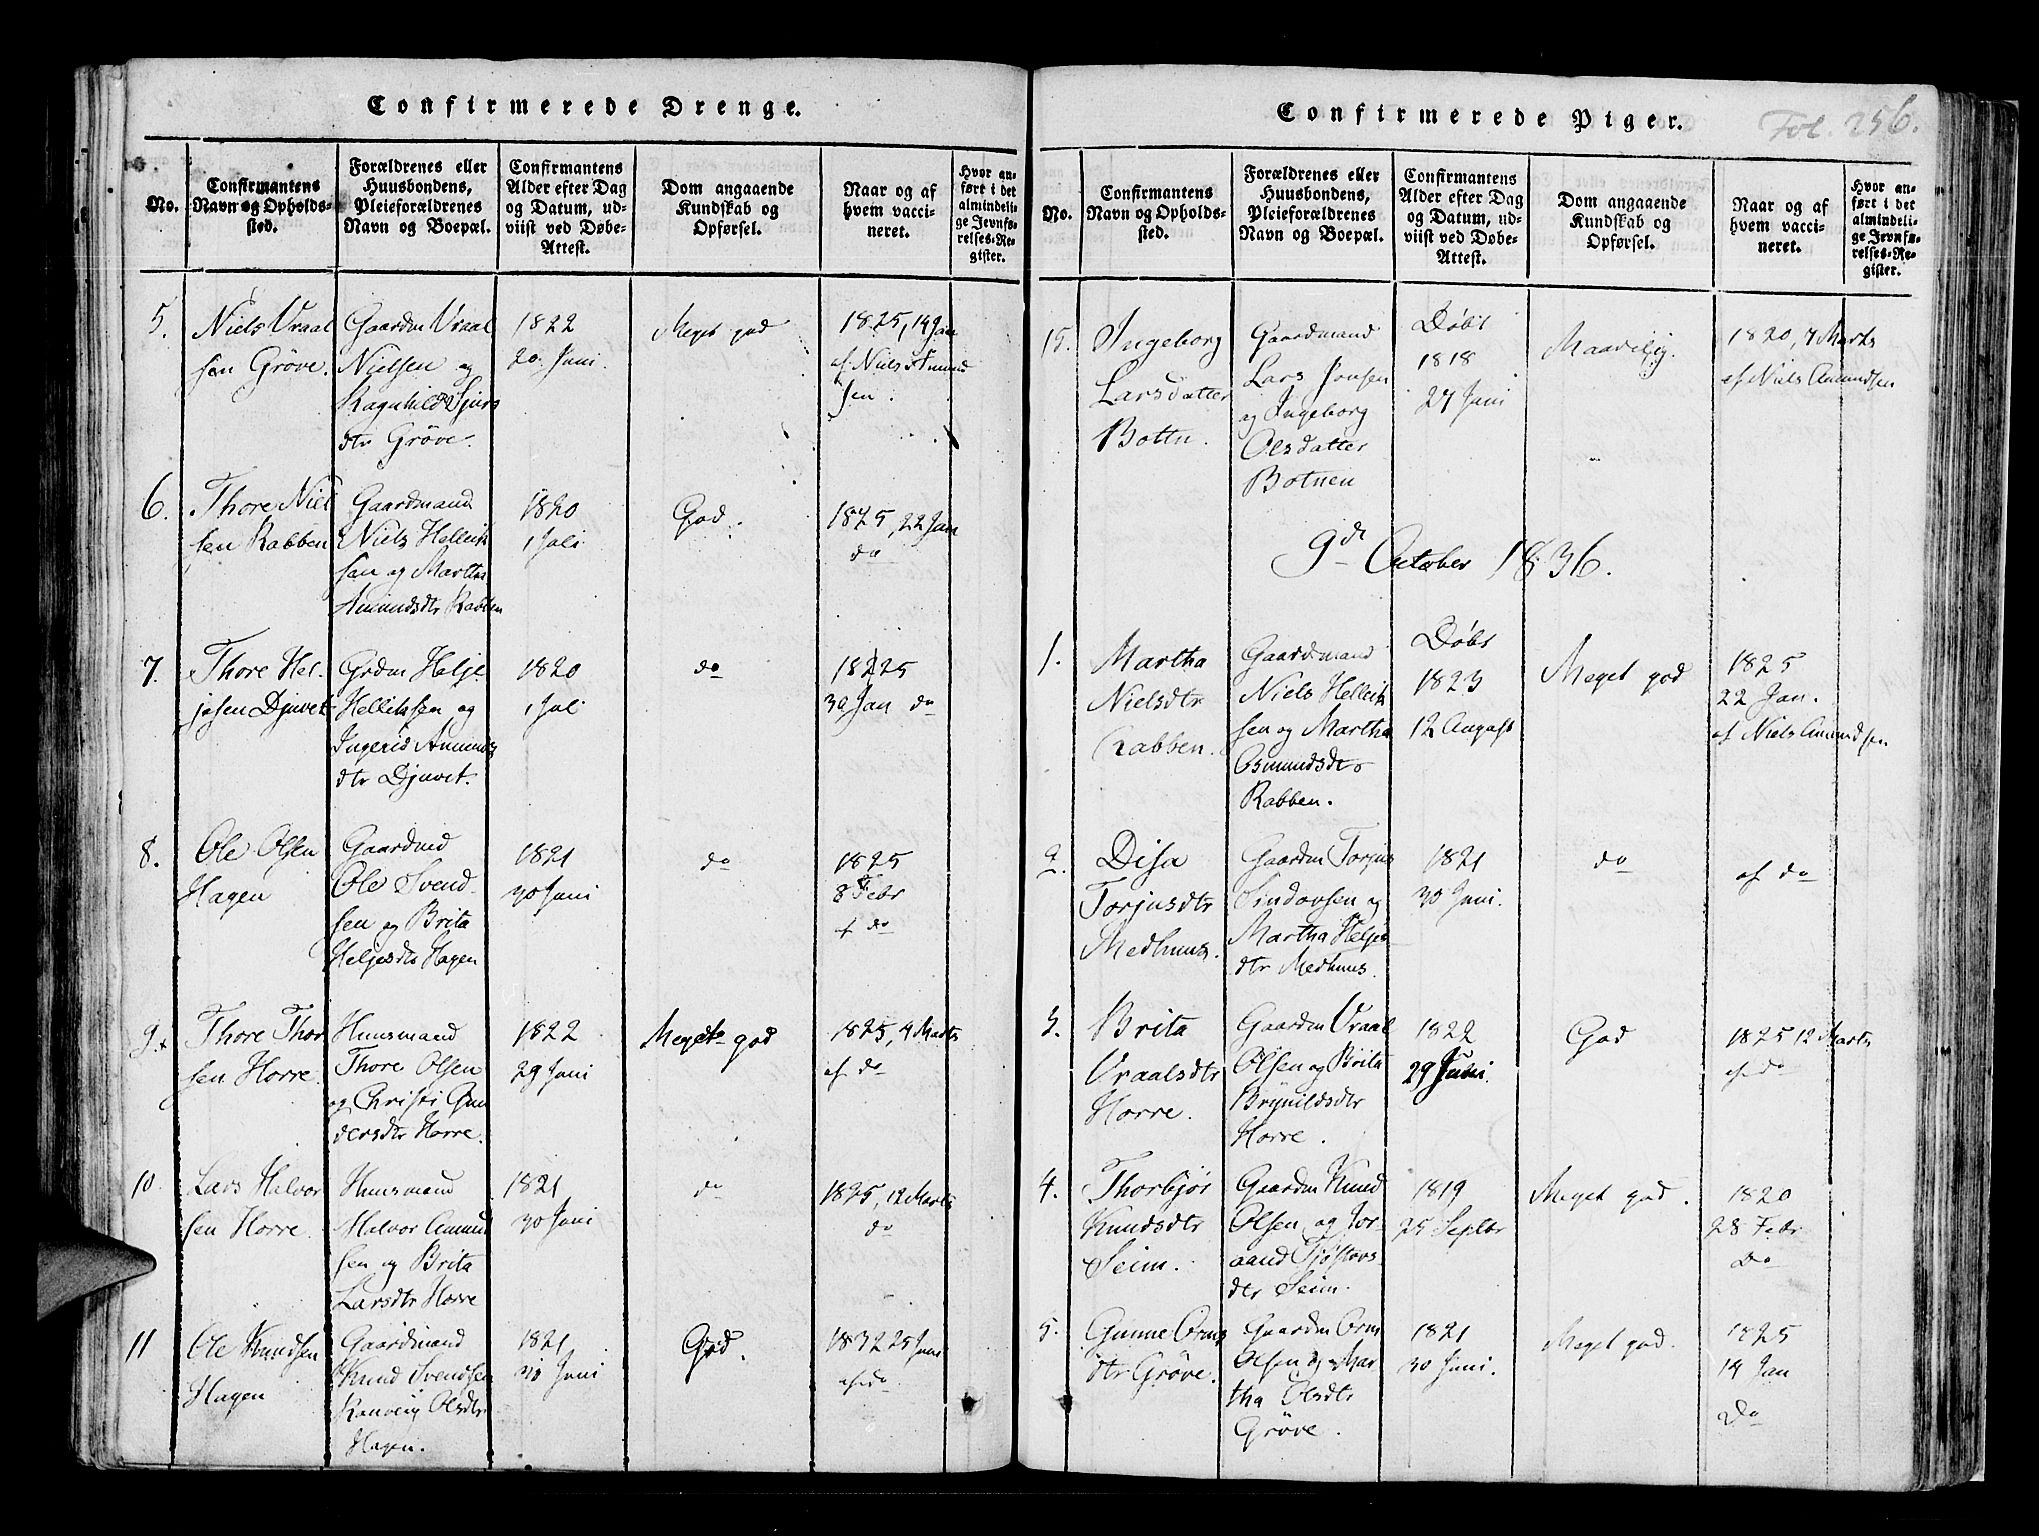 Confirmerede Drenge.
No.
Confirmantens
Navn og Opholds-
sted.
Forældrenes eller
Huusbondens,
Pleieforældrenes
Navn og Boepæl.
Confirmantens
Alder efter Dag
og Datum, ud-
viist ved Døbe-
Attest.
Dom angaaende
Kundskab og
Opførsel.
Naar og af
hvem vacci-
neret.
Hvor an-
ført i det
almindeli-
ge Jevnfø-
relses-Re-
gister.
5.
Niels Vraal
sen Gröve.
Gaardm Vraal
Nielsen og
Ragnhild Sjurs
dtr Gröve.
1822
20. Juni
Meget god
1825, 14 Jan
af Niels Amund
sen.
6.
Thore Niel
sen Rabben
Gaardmand
Niels Hellik
sen og Martha
Amundsdtr Rabben
1820
1 Juli
God.
1825, 22 Jan
do
7.
Thore Hel-
jesen Djuvet
Grdm Helje
Helliksen og
Ingerid Amunds
dtr Djuvet.
1820
1 Juli
do
1825
30 Jan do
8.
Ole Olsen
Hagen
Gaardmd
Ole Svend
sen og Brita
Heljesdtr Hagen
1821
30 Juni
do
1825
8 Febr
af do
9.
Thore Thor
sen Horre.
Huusmand
Thore Olsen
og Christi Gun
dersdtr Horre.
1822
29 Juni
Meget god
1825, 4 Marts
af do
10.
Lars Halvor
sen Horre.
Huusmand
Halvor Amund
sen og Brita
Larsdtr Horre
1821
30 Juni
do
1825, 12 Marts
do
11
Ole Knudsen
Hagen
Gaardmand
Knud Svendsen
Ranveig Olsdtr
Hagen.
1821
30 Juni
God.
1832 25 Juni
af do.
Confirmerede Piger.
Fol. 256.
No.
Confirmantens
Navn og Opholds-
sted.
Forældrenes eller
Huusbondens,
Pleieforældrenes
Navn og Boepæl.
Confirmantens
Alder efter Dag
og Datum, ud-
viist ved Døbe-
Attest.
Dom angaaende
Kundskab og
Opførsel.
Naar og af
hvem vacci-
neret.
Hvor an-
ført i det
almindeli-
ge Jevnfø-
relses-Re-
gister.
15.
Ingeborg
Larsdatter
Bottn.
Gaardmand
Lars Jonsen
og Ingeborg
Olsdatter
Botnen
Döbt
1818
27 Juni
Maadelig.
1820, 7 Marts
af Niels Amundsen
9de October 1836.
1.
Martha
Nielsdtr
Rabben.
Gaardmand
Niels Hellik
sen og Martha
Osmundsdtr
Rabben.
Döbt
1823
12 August
Meget god
1825
22 Jan.
af Niels Amundsen
2.
Disa
Torjusdtr
Medhuus.
Gaardm Torjus
Sindovsen og
Martha Heljes
dtr Medhuus.
1821
30 Juni.
do
af do
3.
Brita
Vraalsdtr
Horre.
Gaardm Vraal
Olsen og Brita
Brynildsdtr
Horre.
1822
29 Juni.
God
1825 12 Marts
af do
4.
Thorbjör
Knudsdtr
Seim.
Gaardm Knud
Olsen og Jor-
aand Tjöstovs
dtr Seim.
1819
25 Septbr
Meget god.
1820
28 Febr
Do
5.
Gunne Orms
dtr Gröve.
Gaardm Orm
Olsen og Mar
tha Olsdtr
Gröve.
1821
30 Juni.
Meget god.
1825
14 Jan
Do